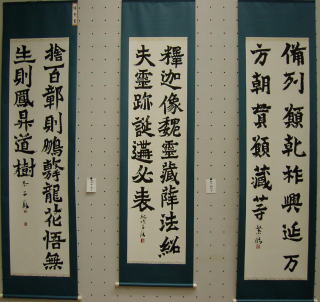 備列願乾祚興延万
方朝貫願藏等
釋迦像魏靈藏薛法紹
失靈跡誕遘必表
捨百鄣則鵬擊龍花悟無
生則鳳昇道樹